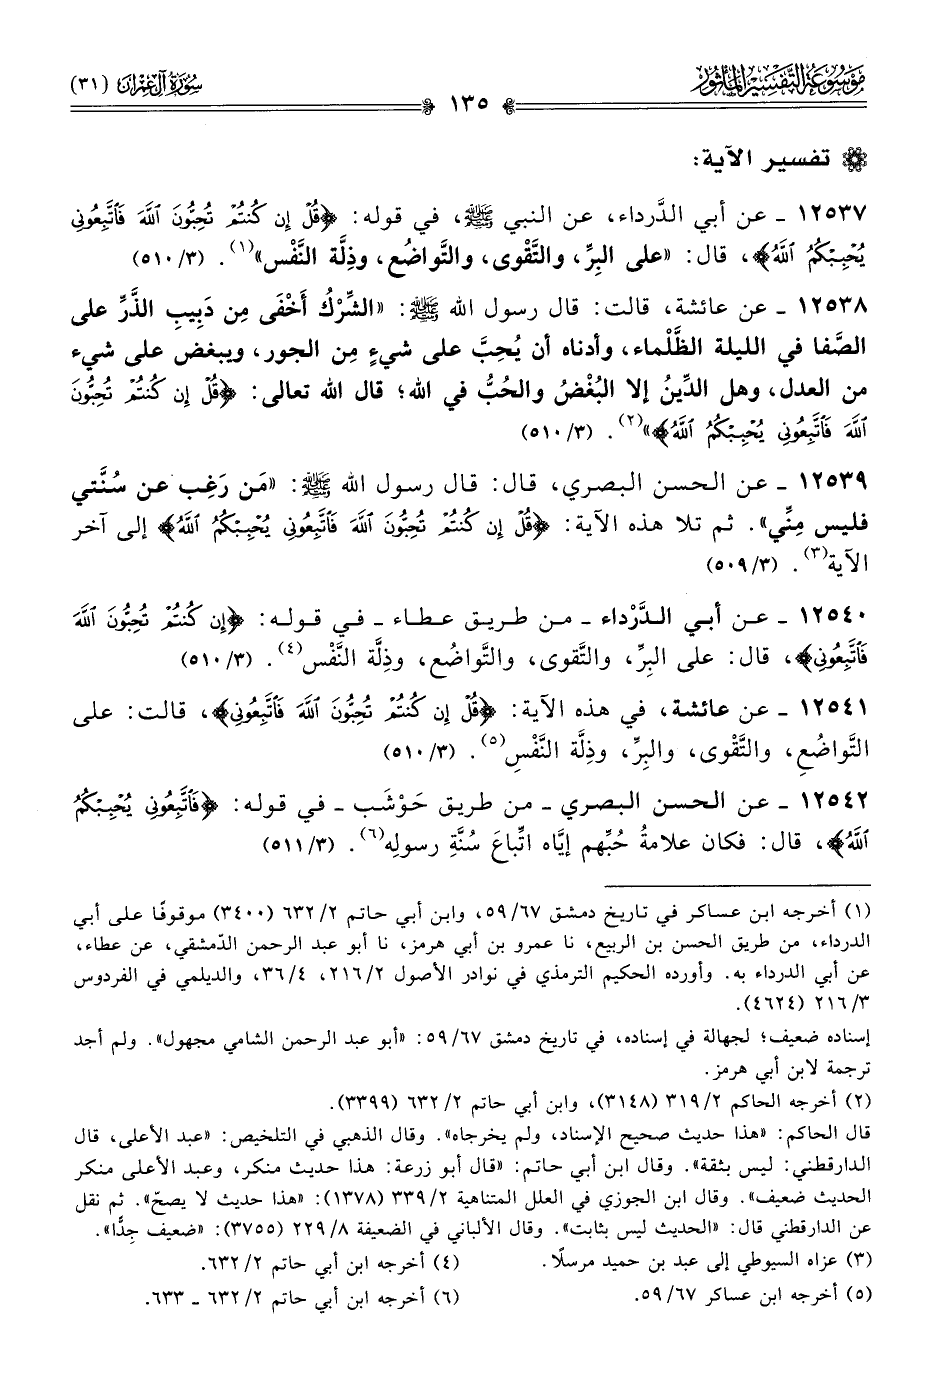 مَوْسُوعَةُ التَّفْسِيرِ المَأْثُورِ
سُورَةُ آلِ عِمْرَان (٣١)
١٣٥
تفسير الآية:
١٢٥٣٧ ـ عن أبي الدَّرداء، عن النبي ﷺ، في قوله: ﴿قُلْ إِن كُنتُمْ تُحِبُّونَ ٱللَّهَ فَٱتَّبِعُونِى
يُحْبِبْكُمُ ٱللَّهُ﴾، قال: «على البِرِّ، والتَّقوى، والتَّواضُع، وذِلَّة النَّفْس»(١). (٣/ ٥١٠)
١٢٥٣٨ ـ عن عائشة، قالت: قال رسول الله ﷺ: «الشِّرْكُ أَخْفَى مِن دَبِيبِ الذَّرِّ على
الصَّفا في الليلة الظَّلْماء، وأدناه أن يُحِبَّ على شيءٍ مِن الجور، ويبغض على شيء
من العدل، وهل الدِّينُ إلا البُغْضُ والحُبُّ في الله؛ قال الله تعالى: ﴿قُلْ إِن كُنتُمْ تُحِبُّونَ
ٱللَّهَ فَٱتَّبِعُونِى يُحْبِبْكُمُ ٱللَّهُ﴾»(٢). (٣/ ٥١٠)
١٢٥٣٩ ـ عن الحسن البصري، قال: قال رسول الله ﷺ: «مَن رَغِب عن سُنَّتي
فليس مِنِّي». ثم تلا هذه الآية: ﴿قُلْ إِن كُنتُمْ تُحِبُّونَ ٱللَّهَ فَٱتَّبِعُونِى يُحْبِبْكُمُ ٱللَّهُ﴾ إلى آخر
الآية(٣). (٣/ ٥٠٩)
١٢٥٤٠ ـ عن أبي الدَّرْداء ـ من طريق عطاء ـ في قوله: ﴿إِن كُنتُمْ تُحِبُّونَ ٱللَّهَ
فَٱتَّبِعُونِى﴾، قال: على البِرِّ، والتَّقوى، والتَّواضُع، وذِلَّة النَّفْس(٤). (٣/ ٥١٠)
١٢٥٤١ ـ عن عائشة، في هذه الآية: ﴿قُلْ إِن كُنتُمْ تُحِبُّونَ ٱللَّهَ فَٱتَّبِعُونِى﴾، قالت: على
التَّواضُعِ، والتَّقْوى، والبِرِّ، وذِلَّة النَّفْسِ(٥). (٣/ ٥١٠)
١٢٥٤٢ ـ عن الحسن البصري ـ من طريق حَوْشَب ـ في قوله: ﴿فَٱتَّبِعُونِى يُحْبِبْكُمُ
ٱللَّهُ﴾، قال: فكان علامةُ حُبِّهم إيَّاه اتِّباعَ سُنَّةِ رسولِه(٦). (٣/ ٥١١)
(١) أخرجه ابن عساكر في تاريخ دمشق ٦٧/ ٥٩، وابن أبي حاتم ٢/ ٦٣٢ (٣٤٠٠) موقوفًا على أبي
الدرداء، من طريق الحسن بن الربيع، نا عمرو بن أبي هرمز، نا أبو عبد الرحمن الدّمشقي، عن عطاء،
عن أبي الدرداء به. وأورده الحكيم الترمذي في نوادر الأصول ٢/ ٢١٦، ٤/ ٣٦، والديلمي في الفردوس
٣/ ٢١٦ (٤٦٢٤).
إسناده ضعيف؛ لجهالة في إسناده، في تاريخ دمشق ٦٧/ ٥٩: «أبو عبد الرحمن الشامي مجهول». ولم أجد
ترجمة لابن أبي هرمز.
(٢) أخرجه الحاكم ٢/ ٣١٩ (٣١٤٨)، وابن أبي حاتم ٢/ ٦٣٢ (٣٣٩٩).
قال الحاكم: «هذا حديث صحيح الإسناد، ولم يخرجاه». وقال الذهبي في التلخيص: «عبد الأعلى، قال
الدارقطني: ليس بثقة». وقال ابن أبي حاتم: «قال أبو زرعة: هذا حديث منكر، وعبد الأعلى منكر
الحديث ضعيف». وقال ابن الجوزي في العلل المتناهية ٢/ ٣٣٩ (١٣٧٨): «هذا حديث لا يصحّ». ثم نقل
عن الدارقطني قال: «الحديث ليس بثابت». وقال الألباني في الضعيفة ٨/ ٢٢٩ (٣٧٥٥): «ضعيف جِدًّا».
(٣) عزاه السيوطي إلى عبد بن حميد مرسلًا.
(٤) أخرجه ابن أبي حاتم ٢/ ٦٣٢.
(٥) أخرجه ابن عساكر ٦٧/ ٥٩.
(٦) أخرجه ابن أبي حاتم ٢/ ٦٣٢ ـ ٦٣٣.